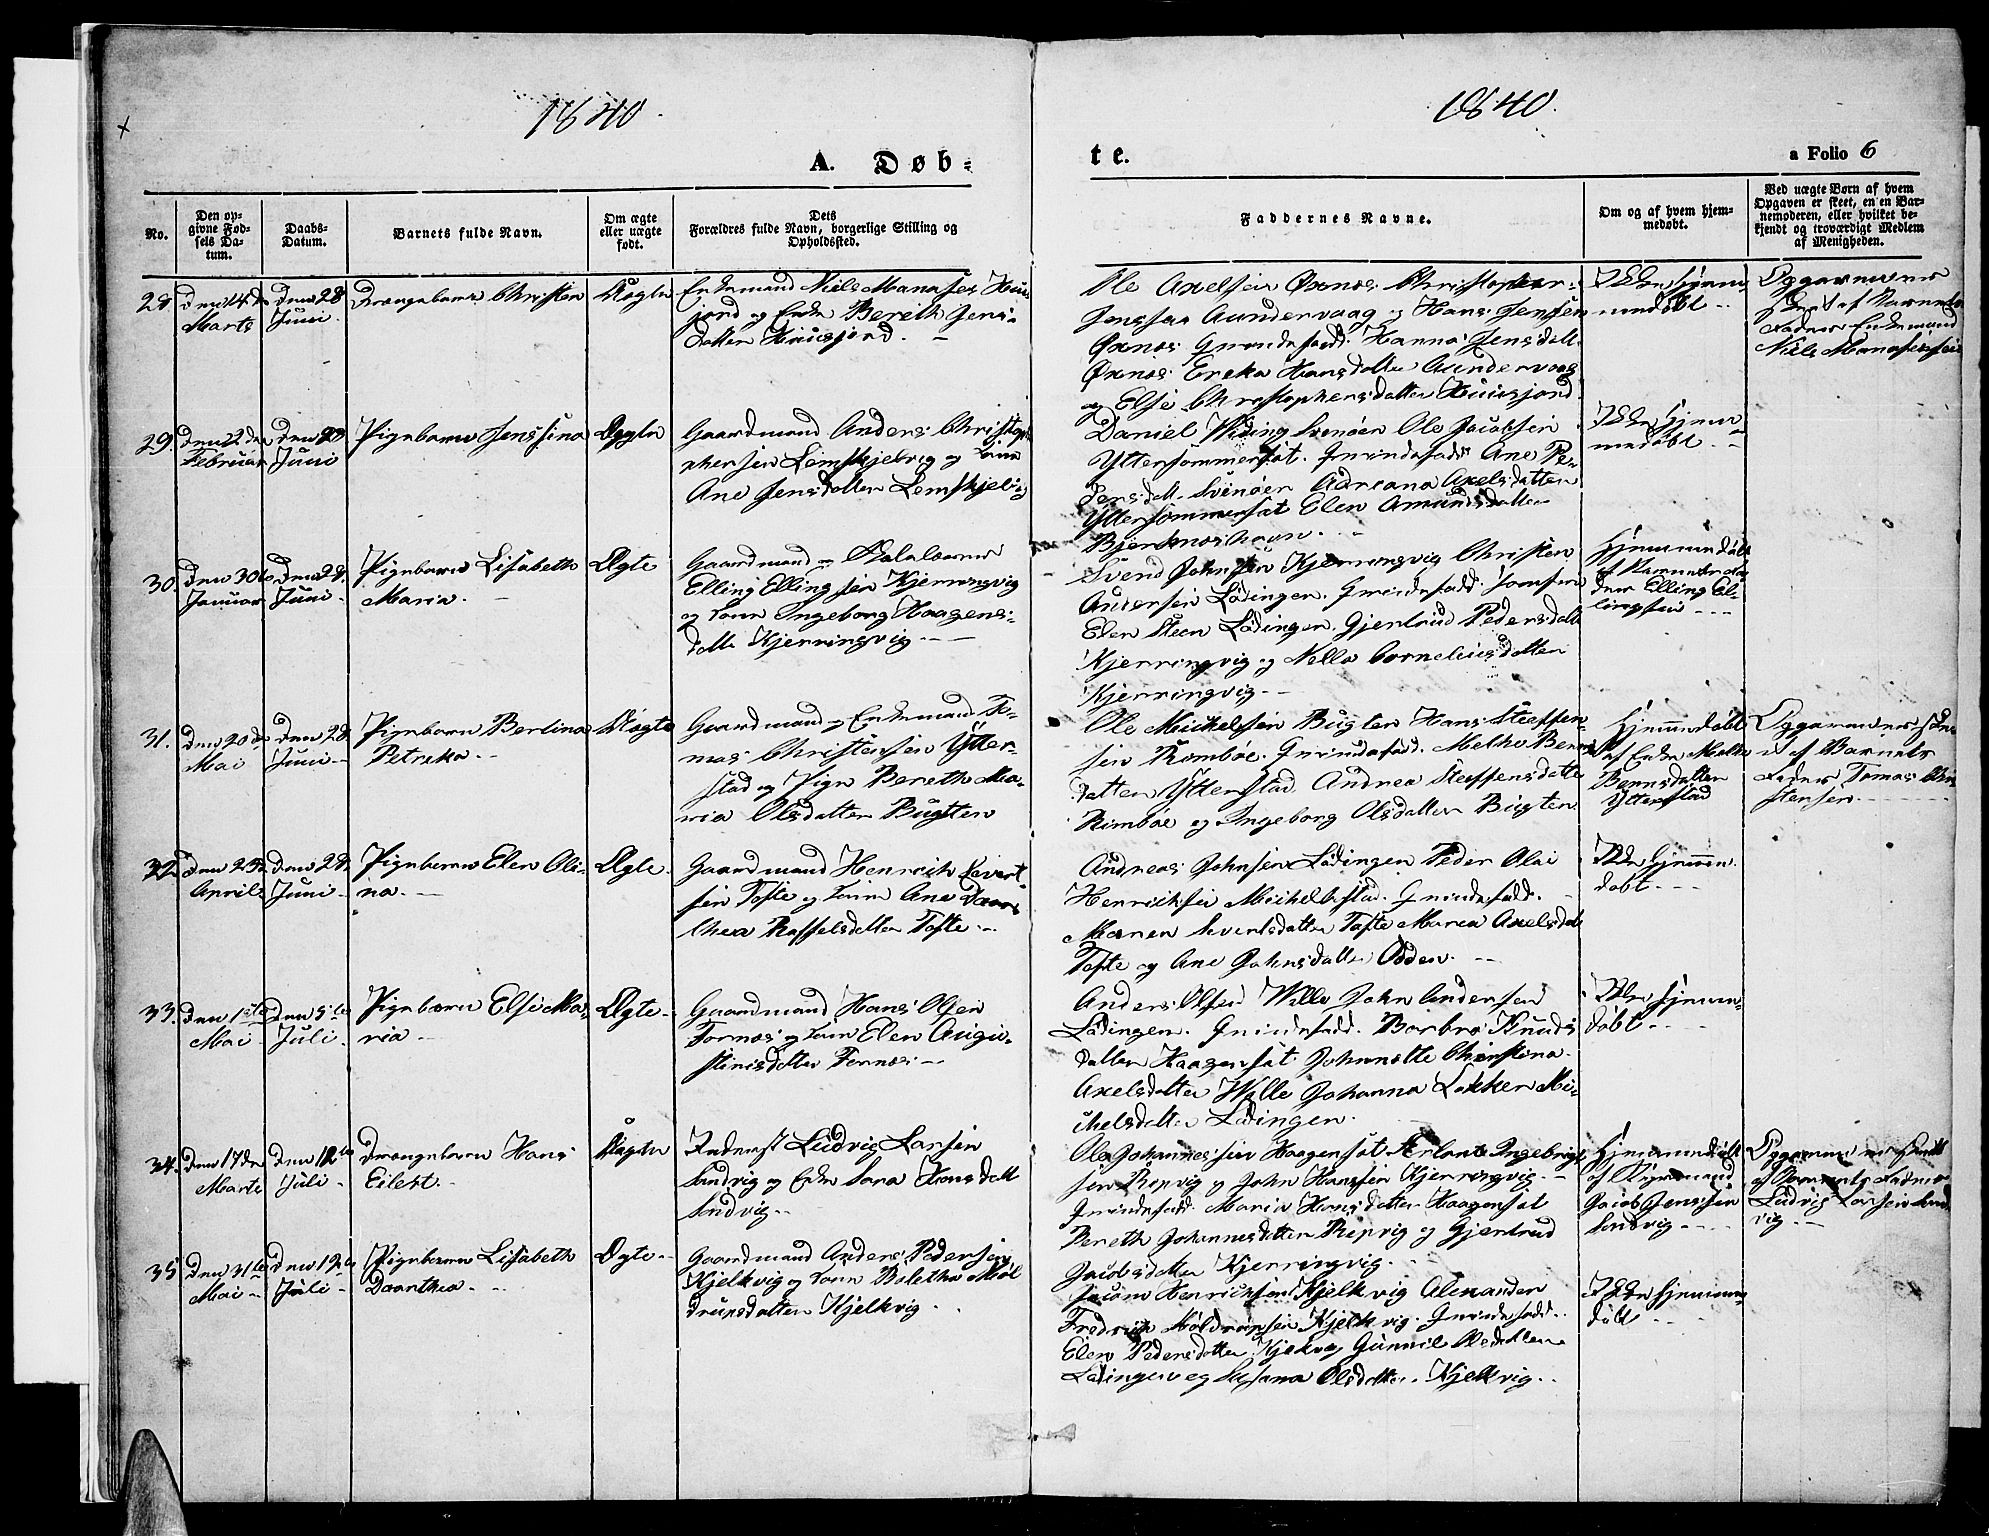 1840.
1840.
A. Døb=
te.
a Folio 6
No.
Den op=
givne Fød=
sels Da=
tum.
Daabs=
Datum.
Barnets fulde Navn.
Om ægte
eller uægte
født.
Dets
Forældres fulde Navn, borgerlige Stilling og
Opholdssted.
Faddernes Navne.
Om og af hvem hjem=
medøbt.
Ved uægte Børn af hvem
Opgaven er skeet, en'en Bar=
nemoderen, eller hvilket be=
kjendt og troværdigt Medlem
af Menigheden.
28.
Den 14de
Marts
Den 28
Juni.
Drengebarn Christen
Uægte
Enkemand Niels Manases
og Enke Bereth Jens=
datter
Ole Axelsen Øxnes Christopher
Jenssen Aundervaag og Hans Jenssen
Øxnes. Qvindefadd. Hanna Jensdatt.
Øxnes. Ereka Hansdatter Aundervaag
og Else Christophersdatter
Ikke hjem=
medøbt
Opgaven er
skeet af Barnets
Fader Enkemand
Niels Manasessen
29.
Den 22de
Februar
Den 28
Juni
Pigebarn Jenssina
Ægte
Gaardmand Anders Christop
phersen Lemskjelvig og Kone
Ane Jensdatter Lemskjelvig
Daniel Svenøer Ole Jacobsen
Yttersommersæt. Qvindefadd. Ane Pe=
dersdatt. Svenøer Adreana Axelsdatter
Yttersommersæt Elen Amundsdatter
Ikke hjem=
medøbt
30.
Den 30te
Januar
Den 28.
Juni.
Pigebarn Lisabeth
Maria.
Ægte
Gaardmand
Elling Ellingsen Kjerringvig
og Kone Ingeborg Haagens=
datter Kjerringvig
Svend Johnsen Kjerringvig Christen
Andersen Lødingen. Qvindefadd. Jomfru
Elen Steen Lødingen. Gjertrud Pedersdatt
Kjerringvig og Nella Corneliusdatter
Kjerringvig.
Hjemmedøbt
af Barnets Fa
der Elling El=
lingsen
31.
Den 20de
Mai
Den 28
Juni
Pigebarn Berlina
Petreka.
Uægte
Gaardmand og Enkemand To=
mas Christensen Ytter=
stad og Pige Bereth Ma=
ria Olsdatter Bugten
Ole Michelsen Bugten Hans Steffen=
sen Rombøe. Qvindefadd.
datter Ytterstad Andrea Steffensdatter
Rombøe og Ingeborg Olsdatter Bugten
Hjemmedøbt
af Enke
Bennsdatter
Ytterstad
Opgaven er skee
af Barnets
Fader Tomas Chri
stensen
32
April
Den 28.
Juni
Pigebarn Elen Oli=
na.
Ægte.
Gaardmand Henrich Evert
sen Tofte og Kone Ane Daar
thea Roffelsdatter Tofte
Andreas Johnsen Lødingen Peder Olai
Henrichsen Michelbstad. Qvindefadd.
Maren Evertsdatter Tofte Maren Axelsdat
Tofte og Ane Johnsdatter Odden.
Ikke hjemme
døbt
33.
Den 1ste
Mai
Den 5te
Juli
Pigebarn Else Ma=
ria
Ægte
Gaardmand Hans Olsen
Fornes og Kone Elen Augu=
stinisdatter Fornes
Anders Olsen John Andersen
Lødingen. Qvindefadd. Barbra Knuds
datter Haagensæt. Johanette Christina
Axelsdatter Johanna Løkken Mi=
chelsdatter Lødingen.
Ikke hjemme=
døbt
34.
Den 17de
Marts
Den 12te
Juli
Drengebarn Hans
Eilert.
Uægte
Inderst Ludvig Larsen
Sandvig og Enke Sara Hansdatt
Sandvig
Ole Johannessen Haagensæt Ingebrigt
sen Repvig og John Hanssen Kjerringvig.
Qvindefadd. Maria Hansdatter Haagensæt
Bereth Johannesdatter Repvig og Gjertrud
Jacobsdatter Kjerringvig.
Hjemmedøbt
af
Jacob Jenssen
Sandvig
Opgaven er skeet
af Barnets Fader
Ludvig Larsen Sand
vig
35
Den 31te
Mai
Den 12te
Juli
Pigebarn Lisabeth
Daarthea.
Ægte
Gaardmand Anders Pedersen
Kjelkvig og Kone Boletha Hol
drupsdatter Kjelkvig
Henrichsen Kjelkvig Alexander
Fredrich Holdrupsen Kjelkvig. Qvindefadd.
Elen Pedersdatter Kjelkvig Gunnil Olesdatter
Lødingen og Susana Olsdatter Kjelkvig.
Ikke hjemme=
døbt